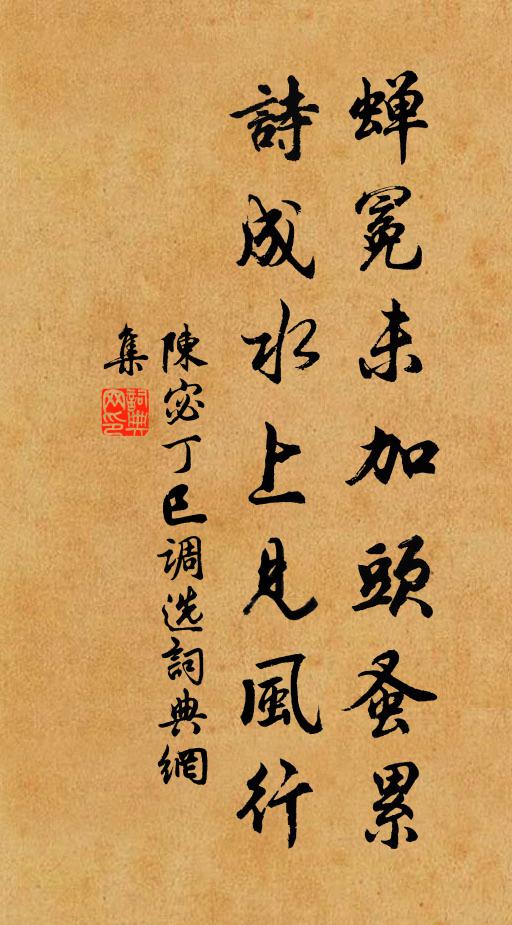 蝉冕未加頭蚤累
詩成水上見風行
陳宓丁巳調选詞典網
集
詞典网印